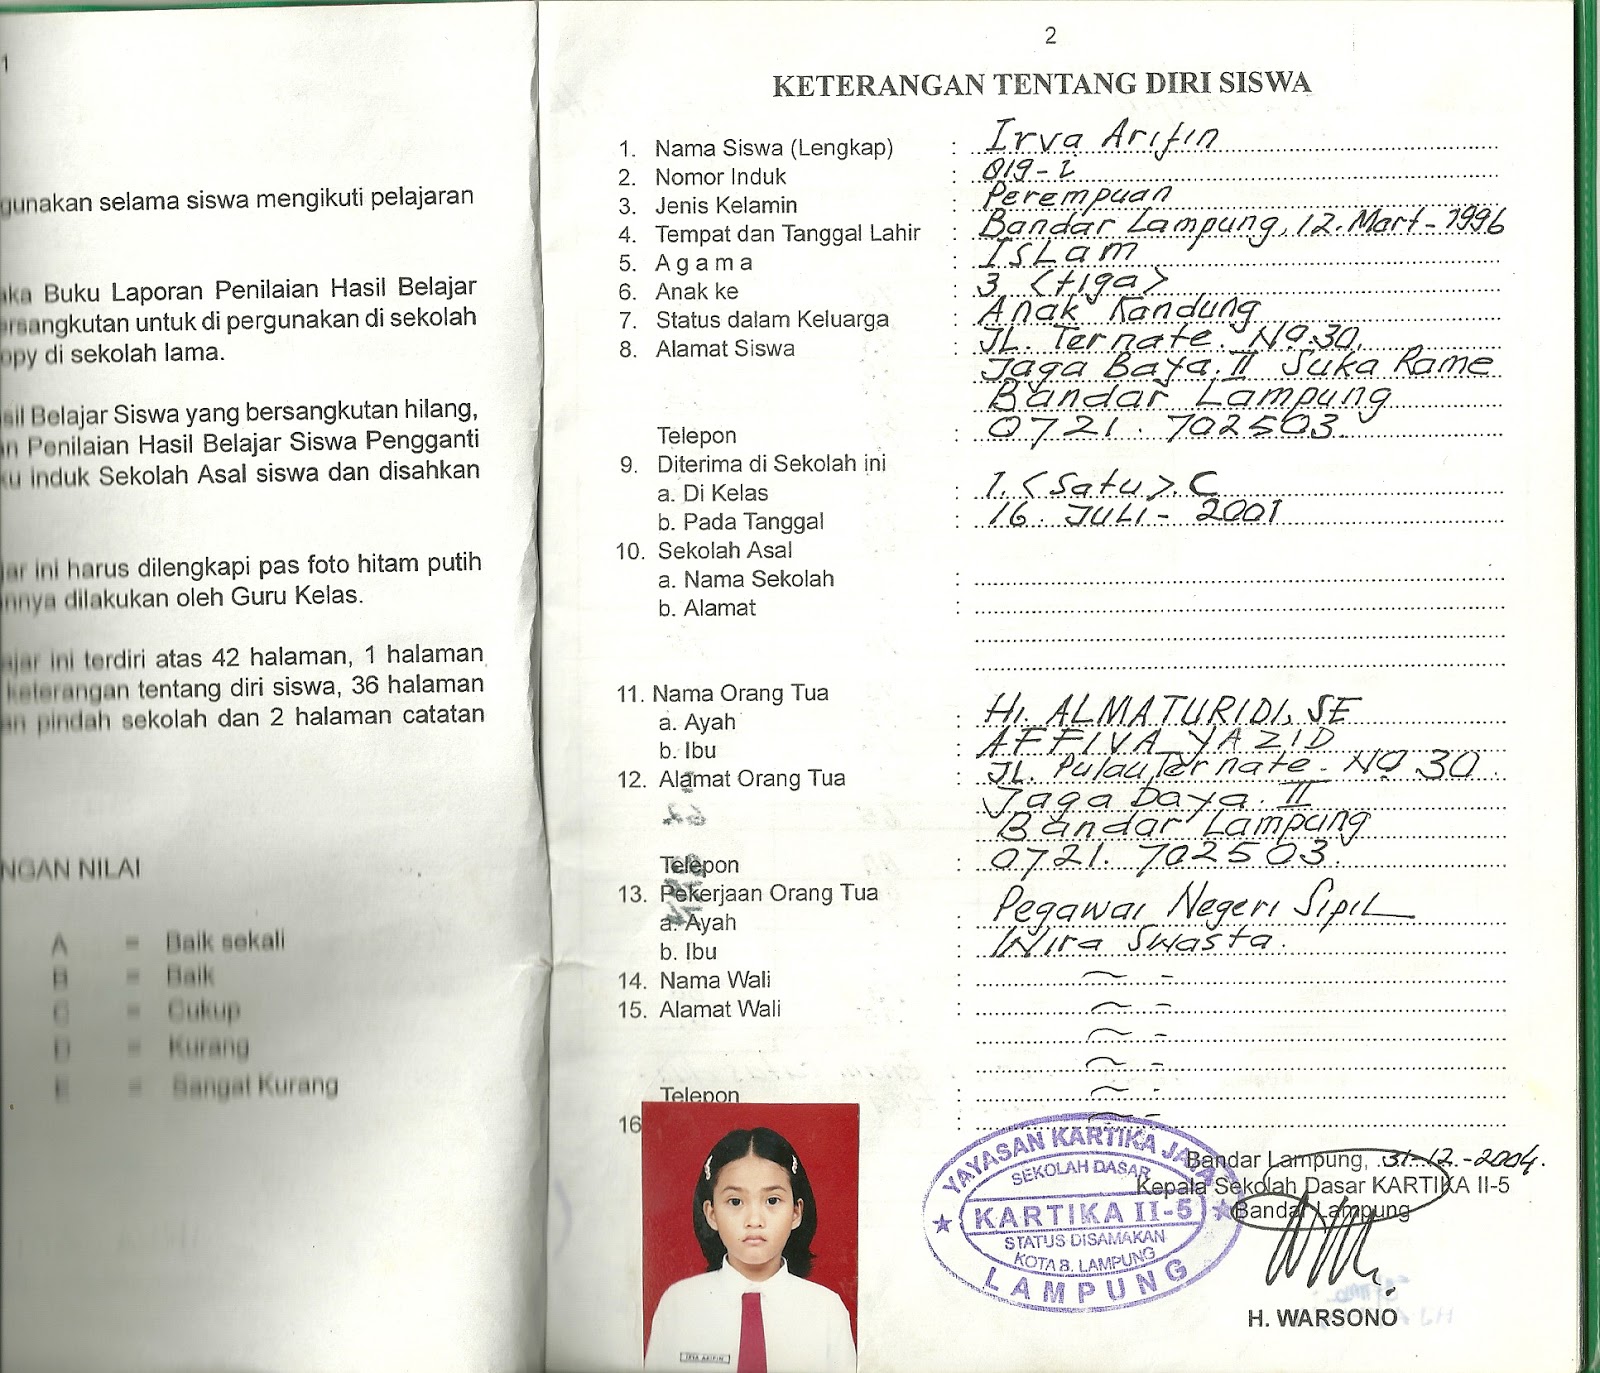 1
gunakan selama siswa mengikuti pelajaran
Buku Laporan Penilaian Hasil Belajar
ersangkutan untuk di pergunakan di sekolah
opy di sekolah lama.
sil Belajar Siswa yang bersangkutan hilang,
n Penilaian Hasil Belajar Siswa Pengganti
induk Sekolah Asal siswa dan disahkan
ini harus dilengkapi pas foto hitam putih
nnya dilakukan oleh Guru Kelas.
ajar ini terdiri atas 42 halaman, 1 halaman
keterangan tentang diri siswa, 36 halaman
an pindah sekolah dan 2 halaman catatan
NGAN NILAI
A = Baik sekali
B = Baik
C = Cukup
D = Kurang
E = Sangat Kurang
2
KETERANGAN TENTANG DIRI SISWA
1. Nama Siswa (Lengkap) : Irva Arifin
2. Nomor Induk : 019-I
3. Jenis Kelamin : Perempuan
4. Tempat dan Tanggal Lahir : Bandar Lampung, 12. Mart-1996
5. A g a m a : IsLam
6. Anak ke : 3 <tiga>
7. Status dalam Keluarga : Anak Kandung
8. Alamat Siswa : JL. Ternate. No.30.
Jaga Baya. II Suka Rame
Bandar Lampung
Telepon : 0721. 702503.
9. Diterima di Sekolah ini
a. Di Kelas : 1. <Satu>. C
b. Pada Tanggal : 16. JULi - 2001
10. Sekolah Asal
a. Nama Sekolah :
b. Alamat :
11. Nama Orang Tua
a. Ayah : Hi. ALMATURIDI, SE
b. Ibu : AFFIVA YAZID
12. Alamat Orang Tua : JL. Pulau Ternate - No.30.
Jaga Baya. II
Bandar Lampung
Telepon : 0721. 702503.
13. Pekerjaan Orang Tua
a. Ayah : Pegawai Negeri Sipil
b. Ibu : Wira Swasta.
14. Nama Wali : ~ -
15. Alamat Wali : ~ -
~ -
~ -
Telepon : ~ -
16 : ~ -
Bandar Lampung, 31-12-2004.
Kepala Sekolah Dasar KARTIKA II-5
Bandar Lampung
YAYASAN KARTIKA JAYA
SEKOLAH DASAR
KARTIKA II-5
STATUS DISAMAKAN
KOTA B. LAMPUNG
LAMPUNG
H. WARSONO
IRVA ARIFIN